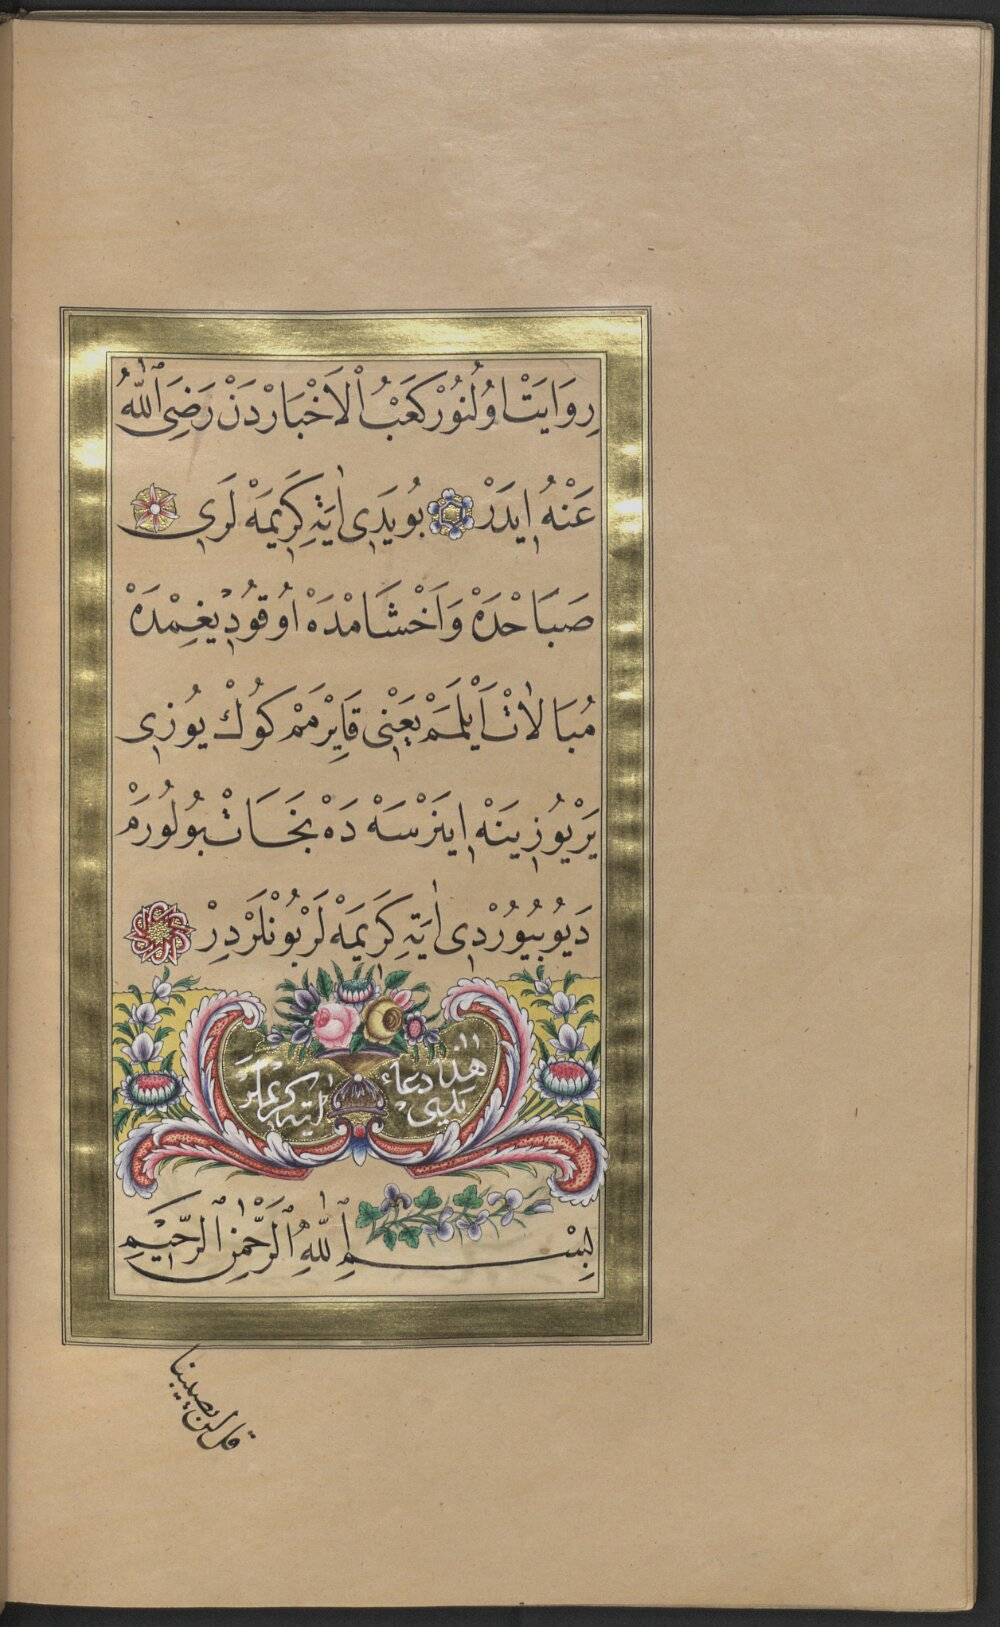 رِوَايَتْ اوُلُنوُرْ كَعَبُ اْلاَخْبَارْدَنْ رَضِىَ اللّٰهُ
عَنْهُ اِيدَرْ بُو يَدِى اٰيَتِ كَرِيمَهْ لَرِى
صَبَاحْدَهْ وَاَخْشَامْدَهْ اوُقوُدِيغِمْدَهْ
مُبَالاٰتْ اَيْلَمَمْ يَعْنِى قَايِرْمَمْ كُوكْ يوُزِى
يَرْيوُزِينَهْ اِينَرْسَهْ دَهْ نَجَاتْ بوُلوُرَمْ
دَيوُ بيُوُرْدِى اٰيَتِ كَرَيمَهْ لَرْ بوُنْلَرْدِرْ
هٰذا دعاء يديى اٰيت كريمه لر
بِسْمِ اللّٰهِ الرَّحْمٰنِ الرَّحِيمِ
قل لن يصيبنا